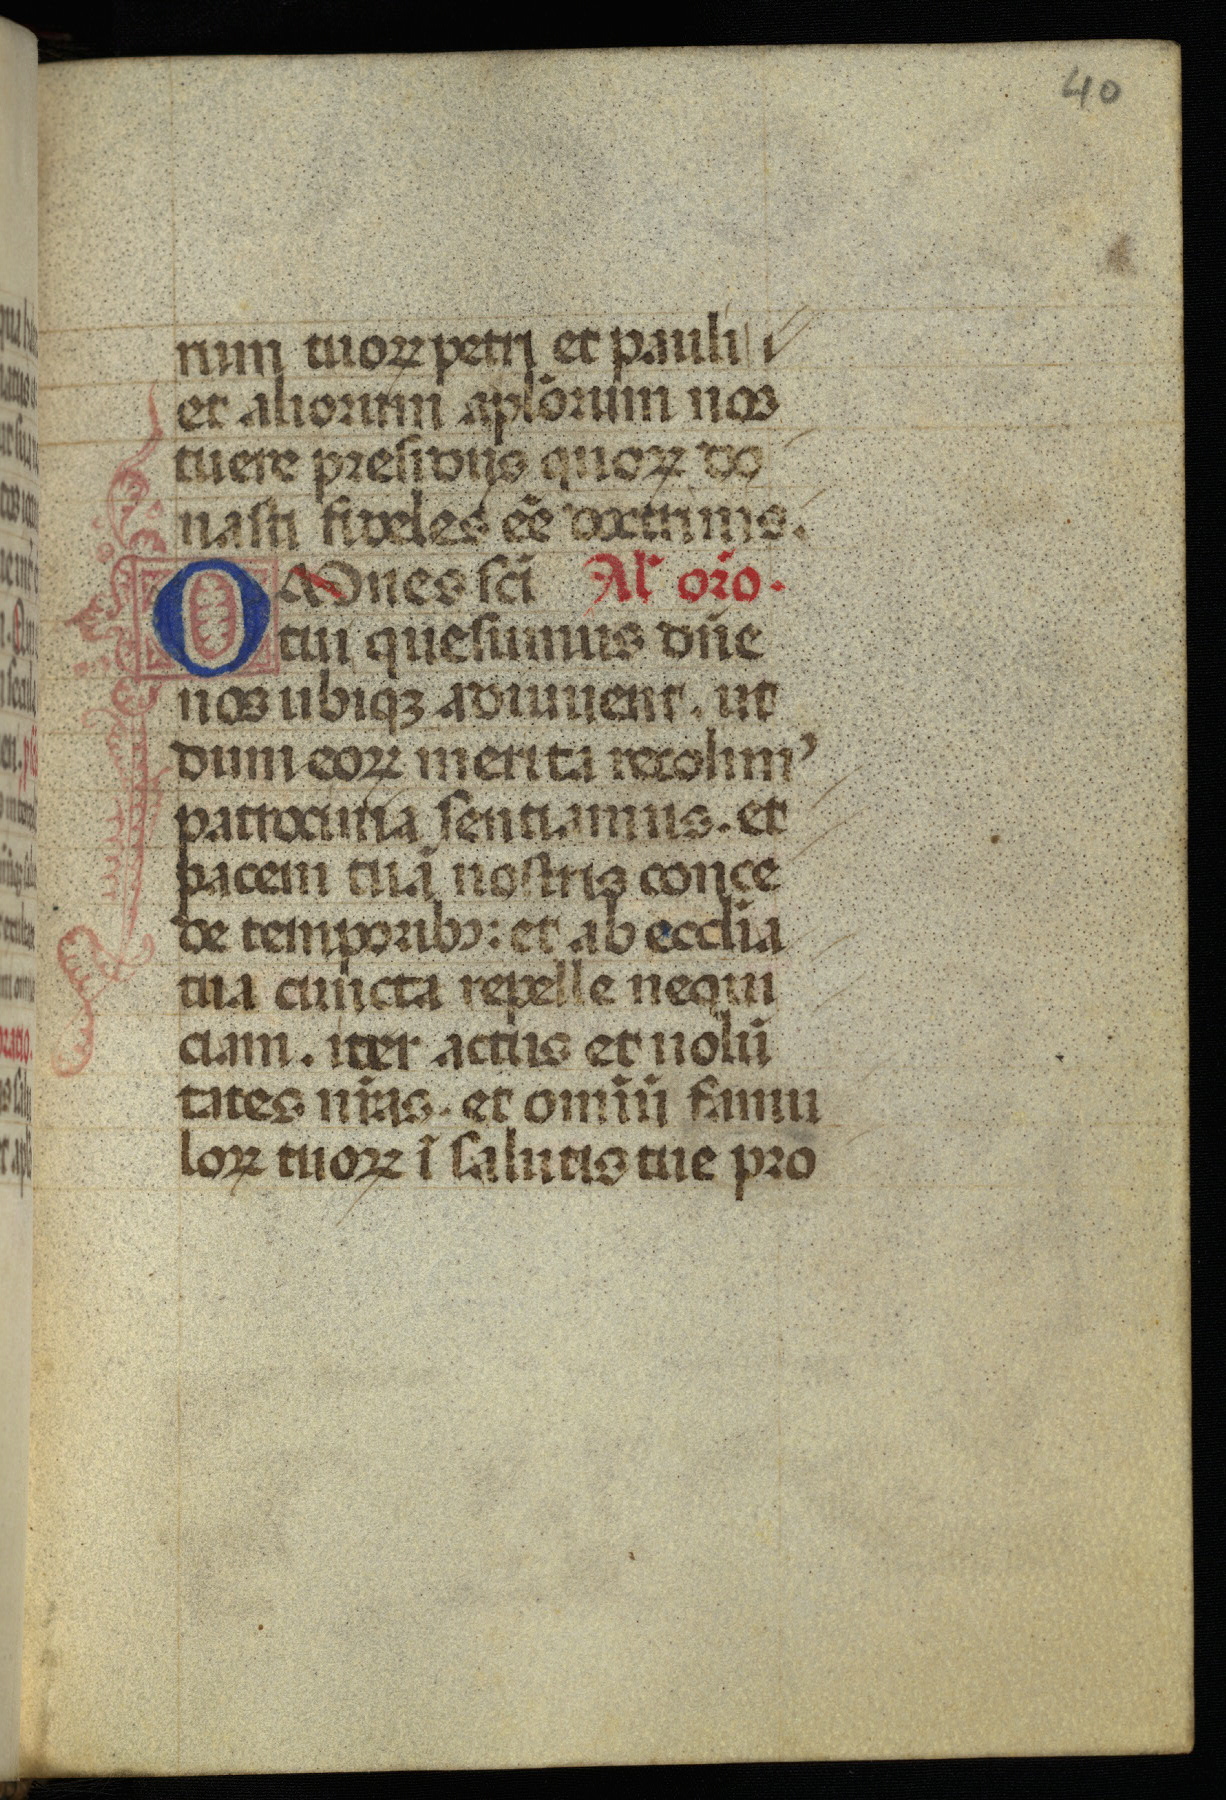 40
rum tuoꝝ petri et pauli
et aliorum apl̄orum nos
tuere presidiis quoꝝ do
nasti fideles ēe doctrinis.
OMnes sc̄i Al' or̄o.
tui quesumus dn̄e
nos ubiqꝫ adiuuent. ut
dum eoꝝ merita recolim᾿
patrocinia sentiamus. et
pacem tuā nostris conce
de temporibꝫ: et ab ecclīa
tua cuncta repelle nequi
ciam. iter actus et uolū
tates nr̄as. et omīū famu
loꝝ tuoꝝ ī salutis tue pro